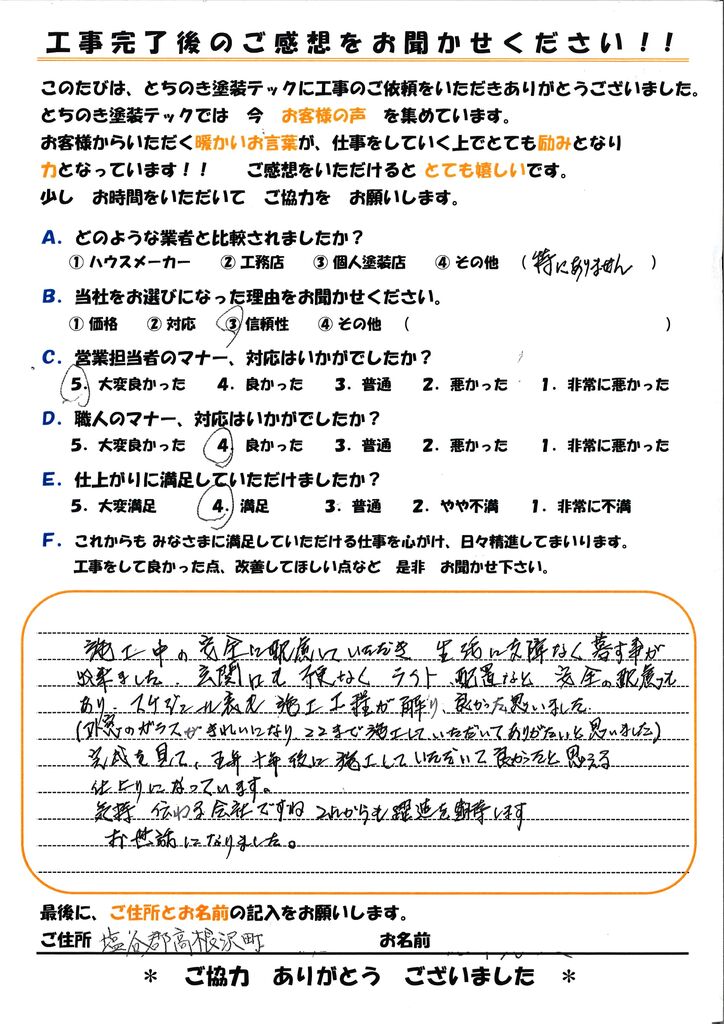 工事完了後のご感想をお聞かせください！！
このたびは、とちのき塗装テックに工事のご依頼をいただきありがとうございました。
とちのき塗装テックでは 今 お客様の声 を集めています。
お客様からいただく暖かいお言葉が、仕事をしていく上でとても励みとなり
力となっています！！ ご感想をいただけると とても嬉しいです。
少し お時間をいただいて ご協力を お願いします。
A. どのような業者と比較されましたか？
① ハウスメーカー ② 工務店 ③ 個人塗装店 ④ その他 （特にありません）
B. 当社をお選びになった理由をお聞かせください。
① 価格 ② 対応 ③ 信頼性 ④ その他 （ ）
C. 営業担当者のマナー、対応はいかがでしたか？
5. 大変良かった 4. 良かった 3. 普通 2. 悪かった 1. 非常に悪かった
D. 職人のマナー、対応はいかがでしたか？
5. 大変良かった 4. 良かった 3. 普通 2. 悪かった 1. 非常に悪かった
E. 仕上がりに満足していただけましたか？
5. 大変満足 4. 満足 3. 普通 2. やや不満 1. 非常に不満
F. これからも みなさまに満足していただける仕事を心がけ、日々精進してまいります。
工事をして良かった点、改善してほしい点など 是非 お聞かせ下さい。
施工中の安全に配慮していただき 生活に支障なく暮す事が
出来ました。玄関口も なく ライト 配置など 安全の配慮も
あり、スケジュール表も 施工工程が解り、良かったと思いました。
(外窓のガラスがきれいになり、ここまで施工していただいてありがたいと思いました)
完成を見て、五年十年後に施工していただいて良かったと思える
仕上りになっています。
気持 伝わる会社ですね これからも躍進を期待します
お世話になりました。
最後に、ご住所とお名前の記入をお願いします。
ご住所 塩谷郡高根沢町 お名前
＊ ご協力 ありがとう ございました ＊